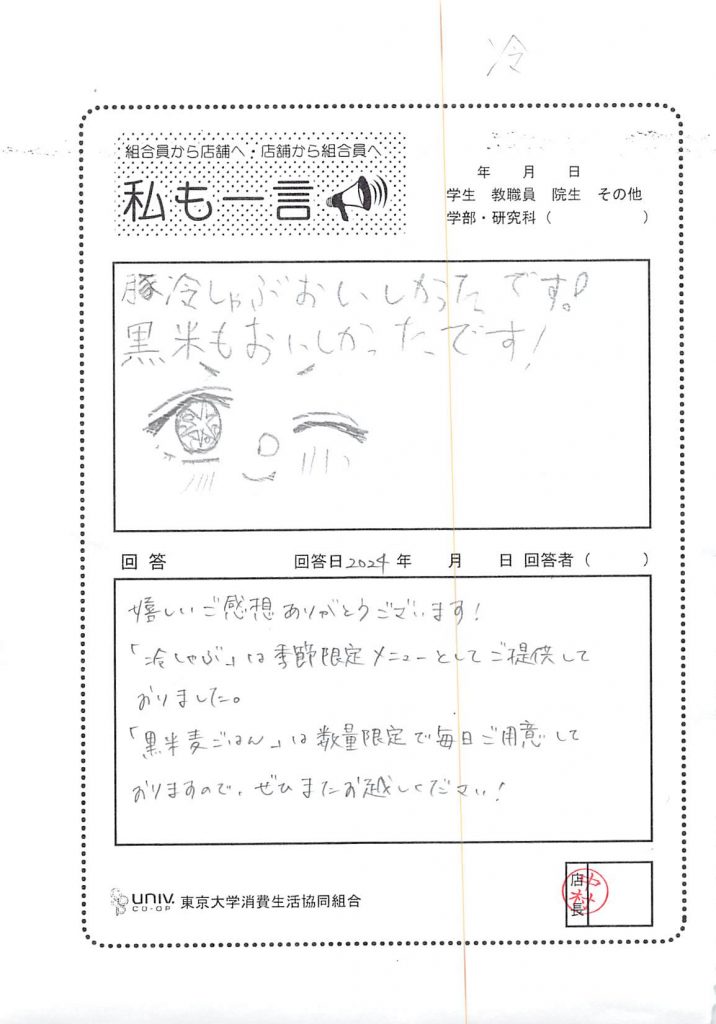 冷
組合員から店舗へ・店舗から組合員へ
私も一言
年 月 日
学生 教職員 院生 その他
学部・研究科( )
豚冷しゃぶおいしかったです!
黒米もおいしかったです!
回答 回答日2024年 月 日 回答者( )
嬉しいご感想ありがとうございます!
「冷しゃぶ」は季節限定メニューとしてご提供して
おりました。
「黒米麦ごはん」は数量限定で毎日ご用意して
おりますので、ぜひまたお越しください!
UNIV.
CO-OP
東京大学消費生活協同組合
店長